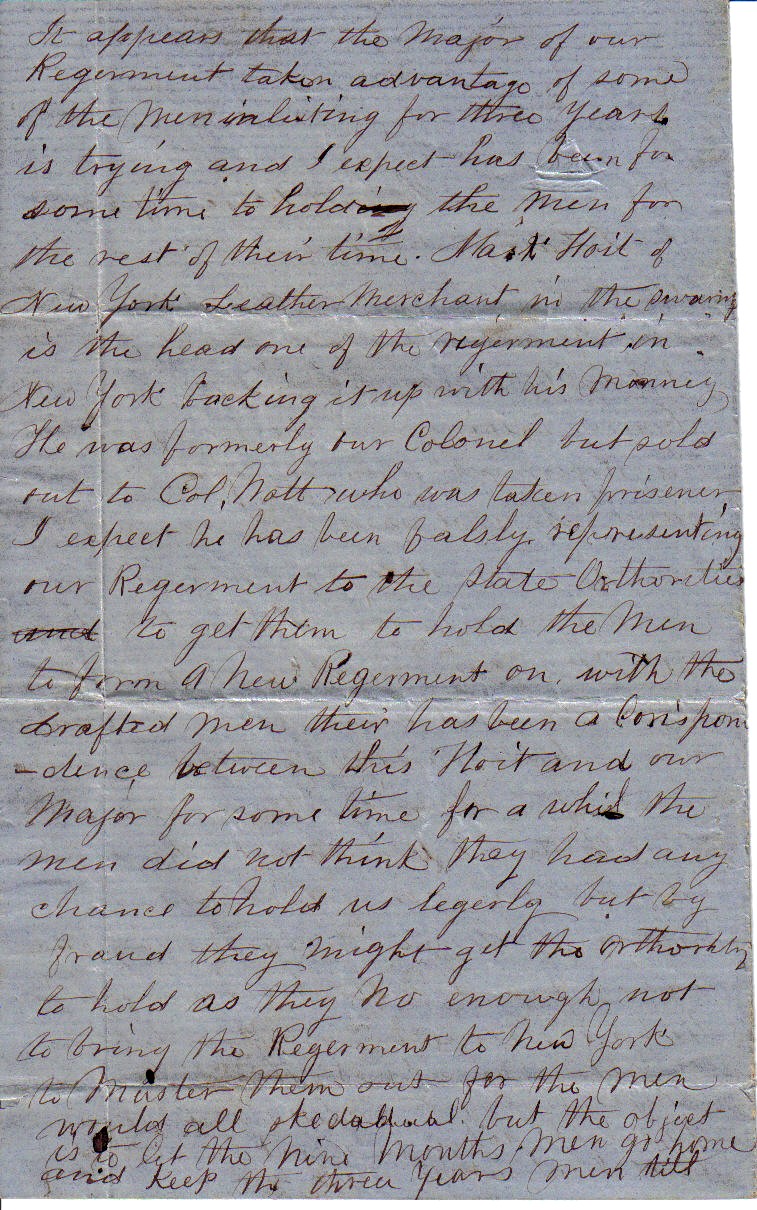 It appears that the Major of our
Regerment taken advantage of some
of the Men inlisting for three years
is trying and I expect has been for
some time to holding the men for
the rest of their time. Hoit of
New York Leather Merchant in the swamp
is the head one of the regerment in
New York backing it up with his Monney
He was formerly our Colonel but sold
out to Col. Nott who was taken prisener
I expect he has been falsly representing
our Regerment to the State Orthorities
and to get them to hold the Men
to form A New Regerment on. with the
drafted men their has been a Corispon
-dence between this Hoit and our
Major for some time for a whil the
men did not think they had any
chance to hold us legerly but by
fraud they might get the orthority
to hold as they No enough not
to bring the Regerment to New York
to Muster them out for the men
would all skedadual. but the object
is to let the Nine Months Men go home
and keep the three Years men till